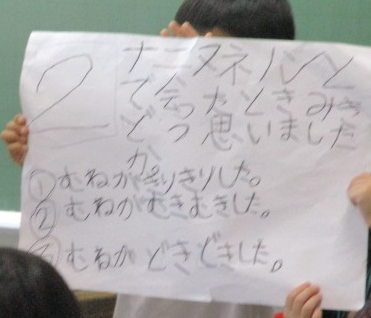 2
ナニヌネノンと
で会ったときみき
どう思いました
か。
①むねがきりきりした。
②むねがむきむきした。
③むねがどきどきした。